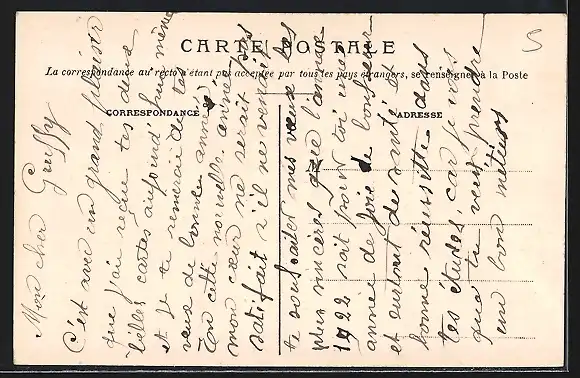 CARTE POSTALE
La correspondance au recto n'étant pas acceptée par tous les pays étrangers, se renseigner à la Poste
CORRESPONDANCE
ADRESSE
M
Mon cher Gruffy
C'est avec un grand plaisir
que j'ai reçue tes deux
belles cartes aujourd'hui même
et je te remercie de tes
veux de bonne année
En cette nouvelle année
mon cœur ne serait pas
satisfait s'il ne venait
te souhaiter mes vœux les
plus sincères que l'année
1922 soit pour toi une
année de joie de bonheur
et surtout de santé et
bonne réussite dans
tes études, car je vois
que tu veux prendre
un bon métiers